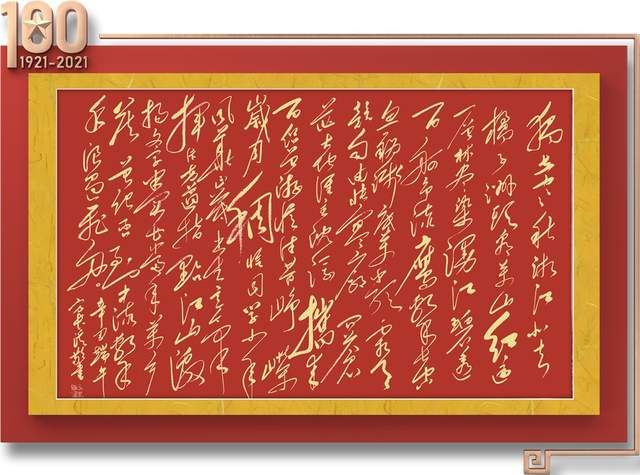 100
1921-2021
独立寒秋湘江北去
橘子洲头看万山红遍
层林尽染漫江碧透
百舸争流鹰击长空
鱼翔浅底万类霜天
竞自由怅寥廓问苍
茫大地谁主沉浮携来
百侣曾游忆往昔峥嵘
岁月稠恰同学少年
风华正茂书生意气
挥斥方遒指点江山激
扬文字粪土当年万户
侯曾记否到中流击水
浪遏飞舟
辛丑端午